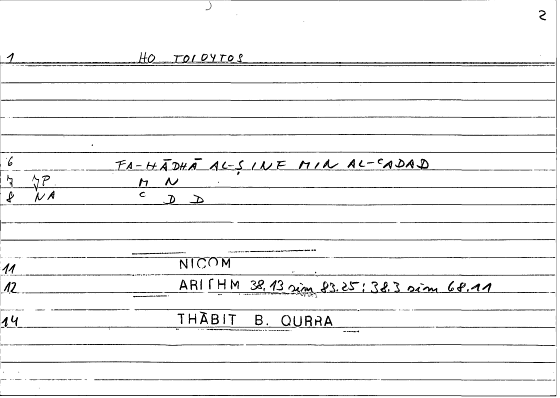 2
1 HO TOIOYTOS
6 FA-HĀDHĀ AL-ṢINF MIN AL-ᶜADAD
7 NP M N
8 NA C D D
11 NICOM
12 ARITHM 38,13 sim 83,25; 38,3 sim 68,11
14 THĀBIT B. QURRA